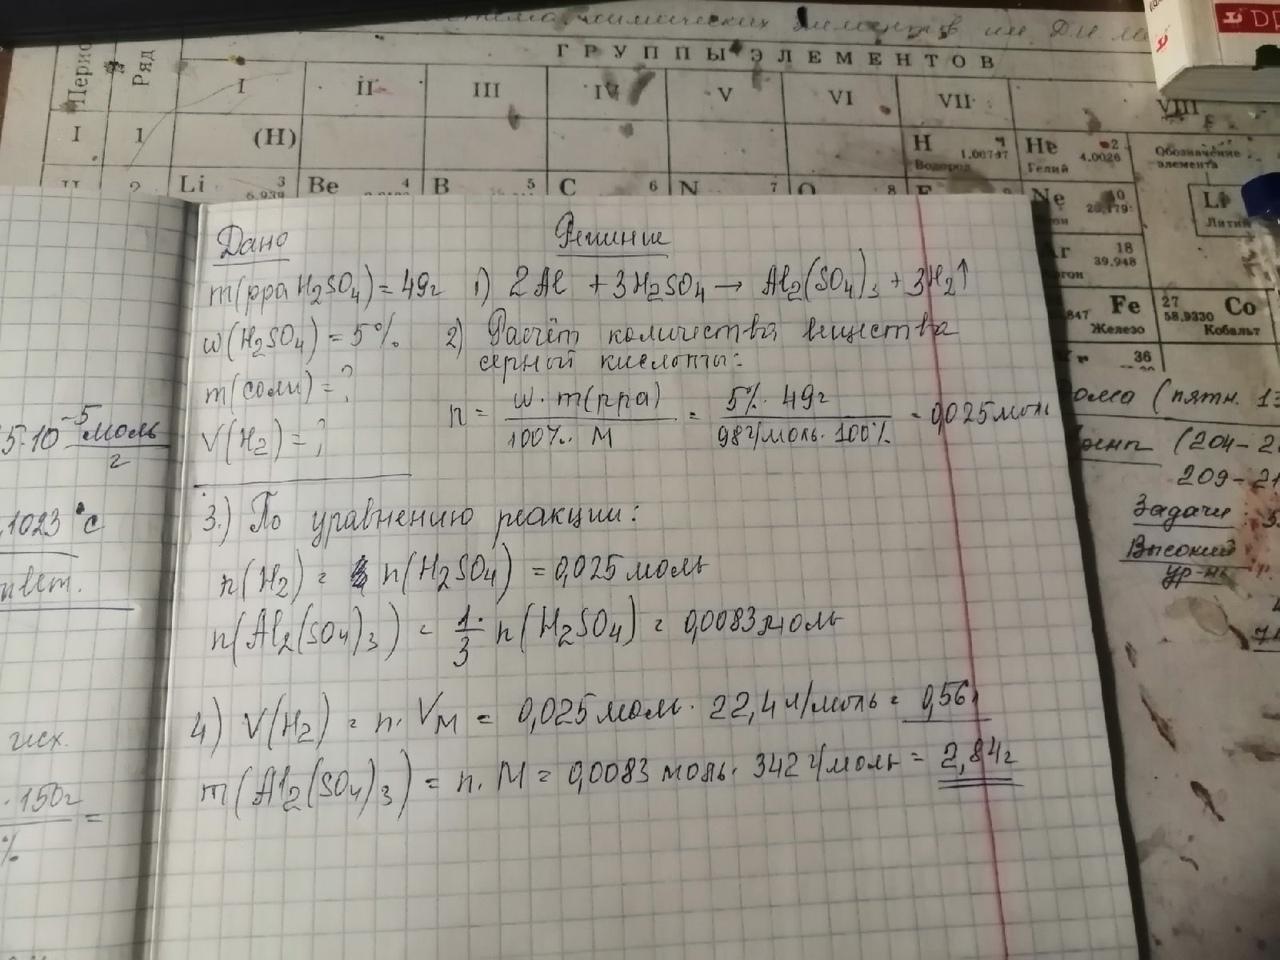 химических элементов им. Д.И.
ГРУППЫ ЭЛЕМЕНТОВ
Ряд
I II III IV V VI VII VIII
I 1 (H) H 1 1,00797 Водород He 2 4,0026 Гелий Обозначение элемента
2 Li 3 6,939 Be 4 B 5 C 6 N 7 O 8 Ne 10 20,179 Li Литий
18 39,948
Fe Железо 27 58,9330 Co Кобальт
36
Дано Решение
m(рра H₂SO₄) = 49г 1) 2Al + 3H₂SO₄ → Al₂(SO₄)₃ + 3H₂↑
w(H₂SO₄) = 5% 2) Расчёт количества вещества
серной кислоты:
m(соли) = ?
n = w · m(рра) / 100% · M = 5% · 49г / 98г/моль · 100% = 0,025моль
V(H₂) = ?
3.) По уравнению реакции:
n(H₂) = n(H₂SO₄) = 0,025моль
n(Al₂(SO₄)₃) = 1/3 · n(H₂SO₄) = 0,0083моль
4) V(H₂) = n · Vм = 0,025моль · 22,4л/моль = 0,56л
m(Al₂(SO₄)₃) = n · M = 0,0083 моль · 342г/моль = 2,84г
5·10⁻⁵ моль/г
1023 °C
исх.
· 150г
% =
(пятн. 13
(204-2
209-21
Задачи
Высокий
ур-нь